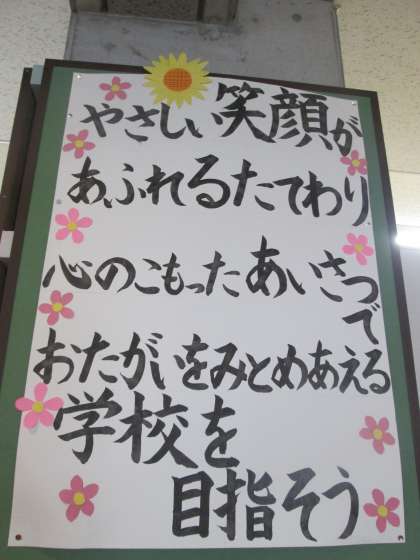 やさしい笑顔が
あふれるたてわり
心のこもったあいさつで
おたがいをみとめあえる
学校を
目指そう